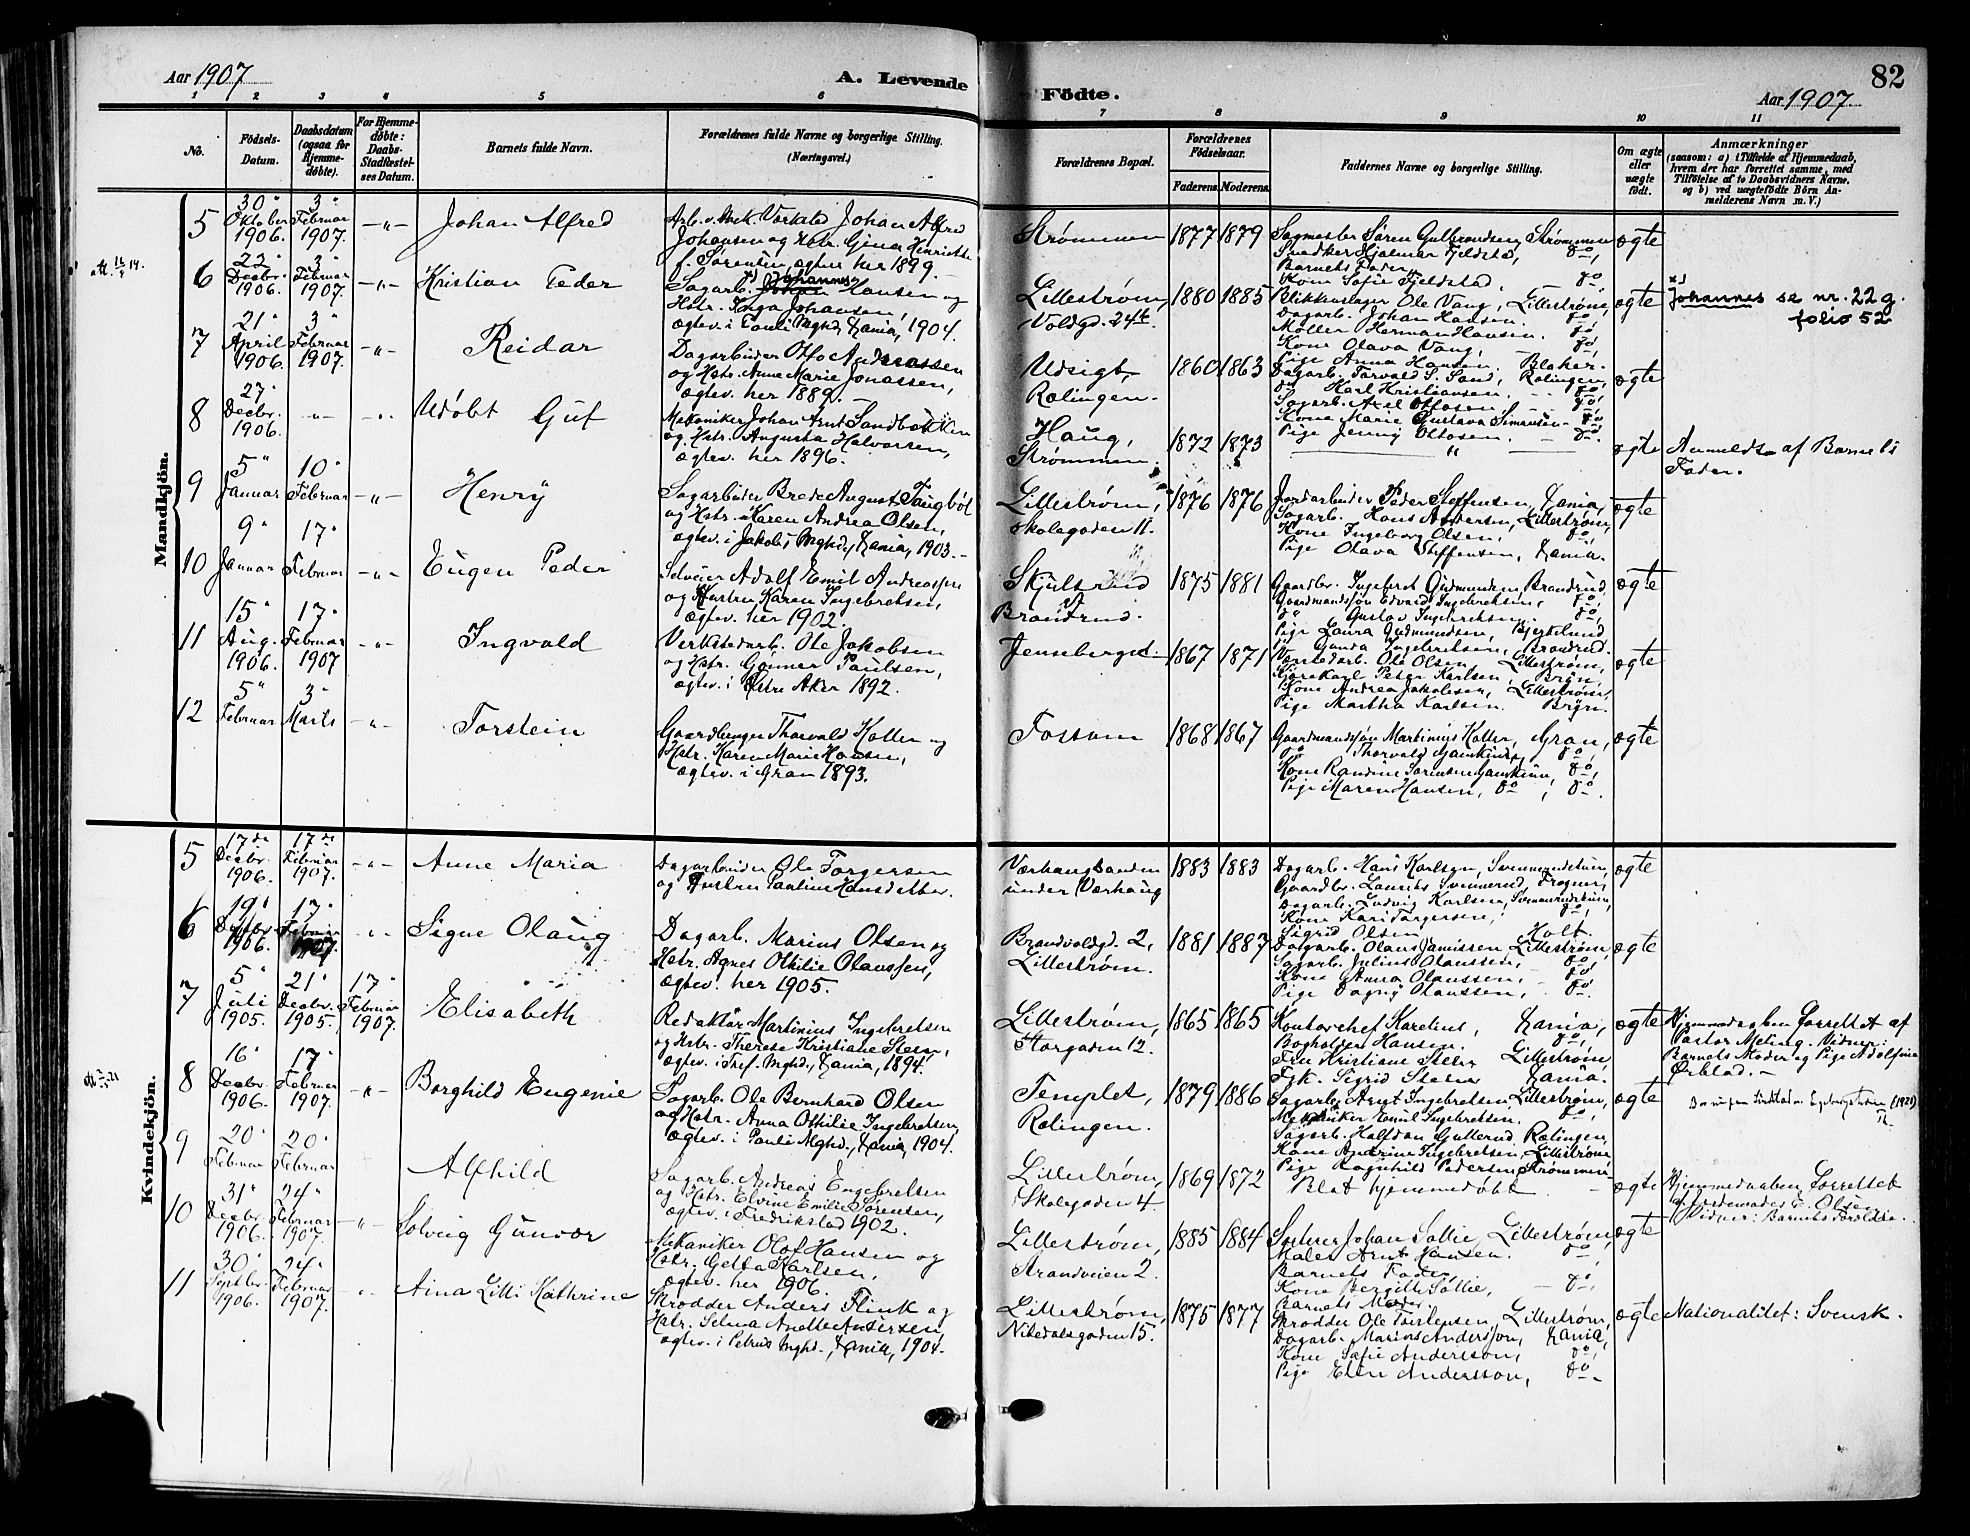 Aar 1907
A. Levende
Födte.
82
Aar 1907
1 2 3 4 5 6 7 8 9 10 11
No.
Födsels-
Datum.
Daabsdatum
(ogsaa for
Hjemme-
døbte).
For Hjemme-
døbte:
Daabs-
Stadfæstel-
ses Datum.
Barnets fulde Navn.
Forældrenes fulde Navne og borgerlige Stilling.
(Næringsvei.)
Forældrenes Bopæl.
Forældrenes
Födselsaar.
Faderens. Moderens.
Faddernes Navne og borgerlige Stilling.
Om ægte
eller
uægte
födt.
Anmærkninger
(saasom: a) i Tilfælde af Hjemmedaab,
hvem der har forrettet samme, med
Tilföielse af to Daabsvidners Navne,
og b) ved uægtefödte Börn An-
melderens Navn m. V.)
Mandkjön.
5
30
Oktober
1906.
3
Februar
1907.
-„-
Johan Alfred
Arb. v. Mek. Værksted Johan Alfred
Johansen og Hstr. Gina Henriette
f. Sørensen, ægtev. her 1899.
Strømmen
1877 1879
Sagmester Søren Gulbrandsen, Strømmen
Snedker Hjalmar Fjeldstad, do,
Barnets Fader,
Kone Sofie Fjeldstad. do
ægte
6
22
Decbr.
1906.
3
Februar
1907.
-„-
Kristian Peder
Sagarb. Johannes Hansen og
Hstr. Inga Johansen,
ægtev. i Pauli Mghd, Xania, 1904.
Lillestrøm,
Voldgd. 24b.
1880 1885
Blikkenslager Ole Vang, Lillestrøm,
Dagarb. Johan Hansen. do,
Møller Herman Hansen. do
Kone Olava Vang, do,
Pige Anna Hansen. Blaker.
ægte
Johannes se nr. 22 g.
folio 52
7
21
April
1906.
3
Februar
1907.
-„-
Reidar
Dagarbeider Otto Andreassen
og Hstr. Anne Marie Jonassen,
ægtev. her 1889.
Udsigt,
Rælingen.
1860 1863
Dagarb. Torvald S. Sand, Rælingen,
do Karl Kristiansen. do,
Sagarb. Axel Ottosen do,
Kone Marie Gustava Simensen do
Pige Jenny Ottosen. do.
ægte
8
27
Decbr.
1906.
-„-
Udøbt Gut
Mekaniker Johan Arnt Sandbækken
og Hstr. Augusta Halvorsen,
ægtev. her 1896.
Haug,
Strømmen.
1872 1873
„
ægte
Anmeldt af Barnets
Fader.
9
5
Januar
10
Februar
-„-
Henry
Sagarbeider Brede August Taugbøl
og Hstr. Karen Andrea Olsen,
ægtev. i Jakobs Mghd., Xania, 1903.
Lillestrøm,
Skolegaden 11.
1876 1876
Jordarbeider Peder Steffensen, Xania,
Sagarb. Hans Andersen, Lillestrøm,
Kone Ingeborg Olsen, do,
Pige Olava Steffensen, Xania.
ægte
10
9
Januar
17
Februar
-„-
Eugen Peder
Selveier Adolf Emil Andreassen
og Hustru Karen Ingebretsen,
ægtev. her 1902.
Skjulsrud
v/
Brandrud.
1875 1881
Gaardbr. Ingebret Gudmundsen, Brandrud,
Gaardmandssøn Edvard Ingebretsen, do,
do Gustav Ingebretsen. do,
Pige Laura Gudmundsen, Bjerkelund
Gunda Ingebretsen, Brandrud.
ægte
11
15
Aug.
1906.
17
Februar
1907
-„-
Ingvald
Verkstedarb. Ole Jakobsen
og Hstr. Gunner Paulsen,
ægtev. i Østre Aker 1892.
Jensberget.
1867 1871
Værkstedarb. Ole Olsen, Lillestrøm,
Kjørekarl Peter Karlsen, Bryn,
Kone Andrea Jakobsen, Lillestrøm,
Pige Martha Karlsen. Bryn.
ægte
12
5
Februar
3
Marts
-„-
Torstein
Gaardbruger Thorvald Koller og
Hstr. Karen Marie Hansen,
ægtev. i Gran 1893.
Fossum
1868 1867
Gaardmandssøn Martinius Koller, Gran,
do Thorvald do,
Kone Randine Sørensen do,
Pige Maren Hansen, do, do.
ægte
Kvindekjön.
5
17de
Decbr.
1906.
17de
Februar
1907.
-„-
Anne Maria
Dagarbeider Ole Torgersen
og Hustru Pauline Hansdatter.
under Værhaug
1883 1883
Dagarb. Hans Karlsen,
Gaardbr. Laurits Svennerud, Frogner,
Dagarb. Ludvig Karlsen,
Kone Kari Torgersen, do,
Sigrid Olsen Holt.
ægte
6
19
1906.
17
Februar
1907.
Signe Olaug
Dagarb. Marius Olsen og
Hstr. Agnes Othilie Olaussen,
ægtev. her 1905.
Brandvoldgd. 2,
Lillestrøm.
1881 1887
Dagarb. Olaus Jamissen Lillestrøm,
Sagarb. Julius Olaussen, do,
Kone Anna Olaussen, do
Pige Dagny Olaussen, do.
ægte
7
5
Juli
1905.
21
Decbr.
1905.
17
Februar
1907.
Elisabeth
Redaktør Martinius Ingebretsen
og Hstr. Therese Kristiane Steen,
ægtev. i Tref. Mghd., Xania, 1894.
Lillestrøm,
Storgaden 12.
1865 1865
Kontorchef Karelius, Xania,
Bogholder Hansen.
Fru Kristiane Steen Lillestrøm,
Frk. Sigrid Steen Xania.
ægte
Hjemmedaaben forrettet af
Pastor Meling. Vidner:
Barnets Moder og Pige Adolfine
Ørblad.
8
16
Decbr.
1906.
17
Februar
1907.
-„-
Borghild Eugenie
Sagarb. Ole Bernhard Olsen
og Hstr. Anna Othilie Ingebretsen,
ægtev. i Pauli Mghd., Xania, 1904.
Templet,
Rælingen.
1879 1886
Sagarb. Arnt Ingebretsen, Lillestrøm,
Mekaniker Emil Ingebretsen. do,
Sagarb. Halfdan Gullerud, Rælingen,
Kone Andrine Ingebretsen, Lillestrøm
Pige Ragnhild Pedersen Strømmen
ægte
9
20
Februar
20
Februar
Alfhild
Sagarb. Andreas Engebretsen
og Hstr. Elvine Emilie Sørensen,
ægtev. i Fredrikstad 1902.
Lillestrøm,
Skolegaden 4.
1869 1872
Blot hjemmedøbt.
ægte
Hjemmedaaben forrettet
af Jordemoder E. Olsen
Vidner: Barnets Forældre.
10
31
Decbr.
1906.
24
Februar
1907.
-„-
Solveig Gunvor
Mekaniker Olof Hansen og
Hstr. Getta Karlsen,
ægtev. her 1906.
Lillestrøm,
Strandveien 2.
1885 1884
Johan Sollie, Lillestrøm,
Maler Arnt Hansen. do,
Barnets Fader,
Kone Bergitte Sollie, do,
Barnets Moder
ægte
11
30
Septbr.
1906.
24
Februar
1907.
Aina Lilli Kathrine
Skrædder Anders Flink og
Hstr. Selma Anette Andersen
ægtev. i Petrus Mghd., Xania, 1904.
Lillestrøm,
Nitedalsgaden 15.
1875 1877
Skrædder Ole Torstensen, Lillestrøm,
Dagarb. Marius Andersson, Xania,
Kone Sofie Andersson, do,
Pige Elen Andersson, do.
ægte
Nationalitet: Svensk.